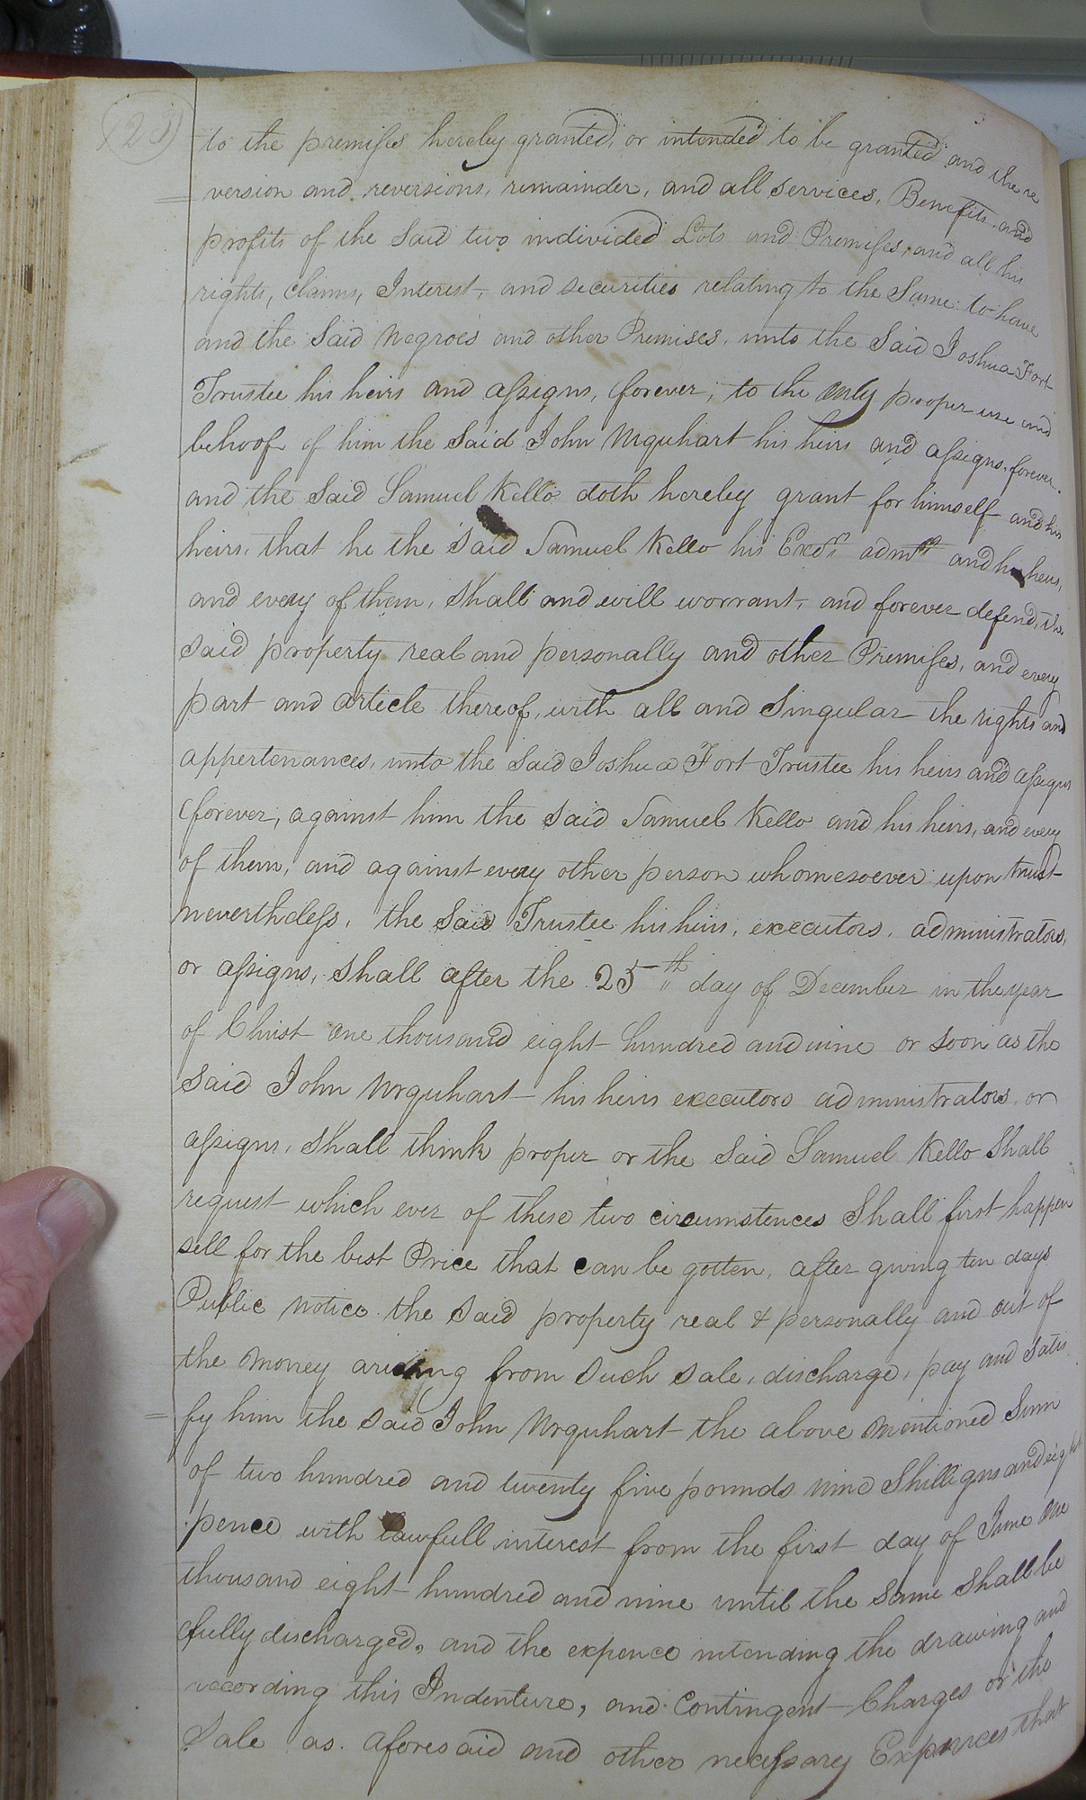 (23)
to the premises hereby granted, or intended to be granted and the re
version and reversions, remainder, and all services, Benefits and
profits of the Said two individed Lots and Premises, and all his
rights, claims, Interest, and securities relating to the Same: to have
and the Said Negroes and other Premises, unto the Said Joshua Fort
Trustee his heirs and assigns, forever, to the only proper use and
behoof of him the Said John Urquhart his heirs and assigns, forever.
and the Said Samuel Kello doth hereby grant for himself and his
heirs, that he the Said Samuel Kello his Exors admrs and his heirs,
and every of them, Shall and will worrant, and forever defend, the
Said property real and personally and other Premises, and every
part and article thereof, with all and Singular the rights and
appertenances, unto the Said Joshua Fort Trustee his heirs and assigns
forever, against him the Said Samuel Kello and his heirs, and every
of them, and against every other person whomesoever upon trust
nevertheless, the Said Trustee his heirs, executors, administrators,
or assigns, Shall after the 25th day of December in the year
of Christ one thousand eight hundred and nine or soon as the
Said John Urquhart his heirs executors administrators, or
assigns, Shall think proper or the Said Samuel Kello Shall
request which ever of these two circumstences Shall first happen
sell for the best Price that can be gotten, after giving ten days
Public notice the Said property real & personally and out of
the money arising from Such Sale, discharge, pay and Satis
fy him the Said John Urquhart the above mentioned Sum
of two hundred and twenty five pounds nine Shilligns and eight
pence with lawfull interest from the first day of June one
thousand eight hundred and nine until the Same Shall be
fully discharged, and the expence intending the drawing and
recording this Indenture, and Contingent Charges or the
Sale as aforesaid and other necessary Expences that